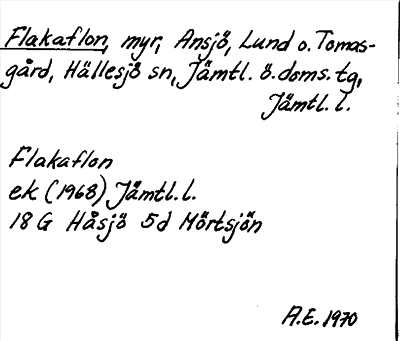 Flakaflon, myr, Ansjö, Lund o. Tomas-
gård, Hällesjö sn, Jämtl. ö. doms. tg,
Jämtl. l.
Flakaflon
ek (1968) Jämtl. l.
18 G Håsjö 5d Mörtsjön
A.E. 1970